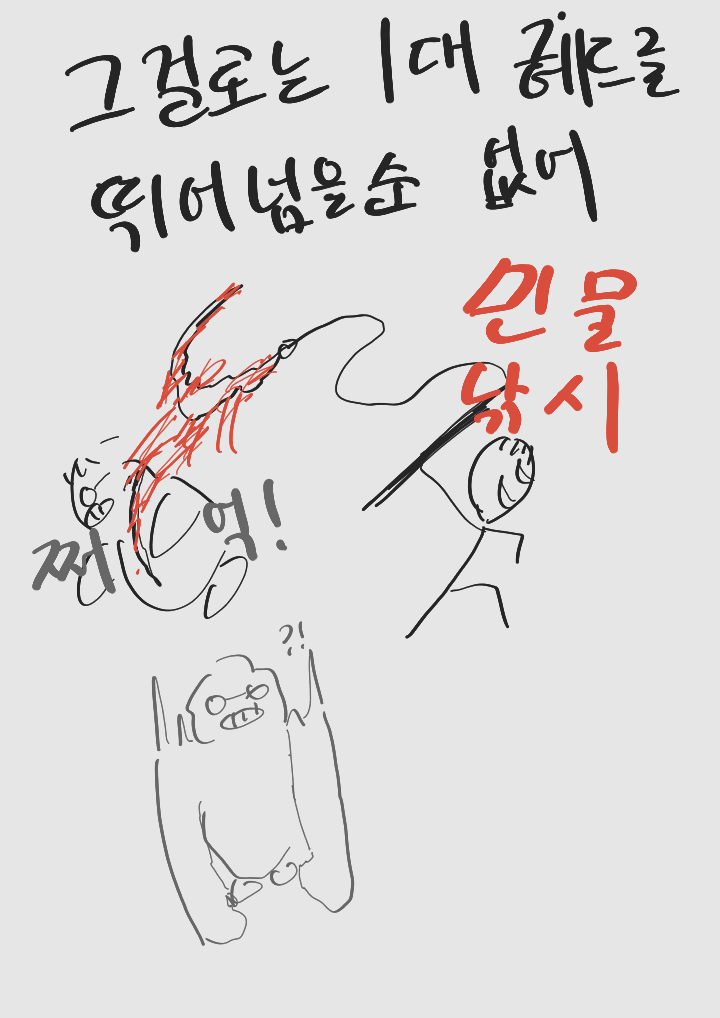 그걸로는 1대 헤드를
뛰어넘을순 없어
민물
낚시
쩌억!
?!